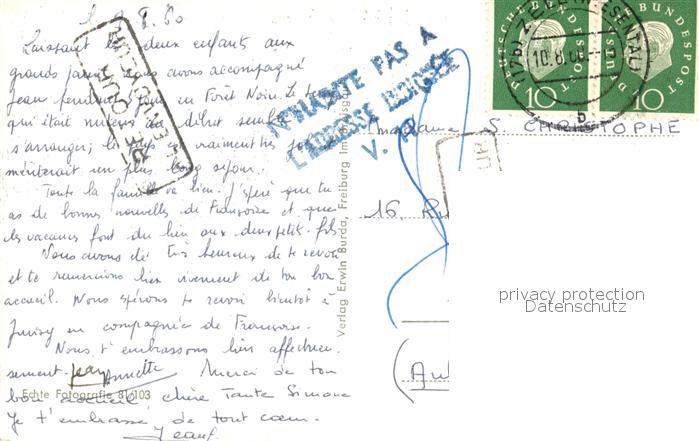 Laissant les deux enfants aux
grands parents nous avons accompagné
Jean pendant son en Forêt Noire. Le temps
qui était au début semble
s'arranger; le vraiment très
mériterait un plus long séjour.
Toute la famille va bien. J'espère que tu
as de bonnes nouvelles de Françoise et que
les vacances font du bien aux deux petits fils
Nous avons été très heureux de te revoir
et te remercions bien vivement de ton bon
accueil. Nous espérons te revoir bientôt à
Juvisy en compagnie de Françoise.
Nous t'embrassons bien affectueu-
sement. Jean Annette Merci de ton
bon accueil chère Tante Simone
Je t'embrasse de tout coeur.
Jean
Echte Fotografie 81/103
Verlag Erwin Burda, Freiburg Im Breisgau
RETOUR
N'HABITE PAS A
L'ADRESSE INDIQUÉE
DEUTSCHE BUNDESPOST
10
DEUTSCHE BUNDESPOST
10
Madame S. CHRISTOPHE
16, Ru
privacy protection
Datenschutz